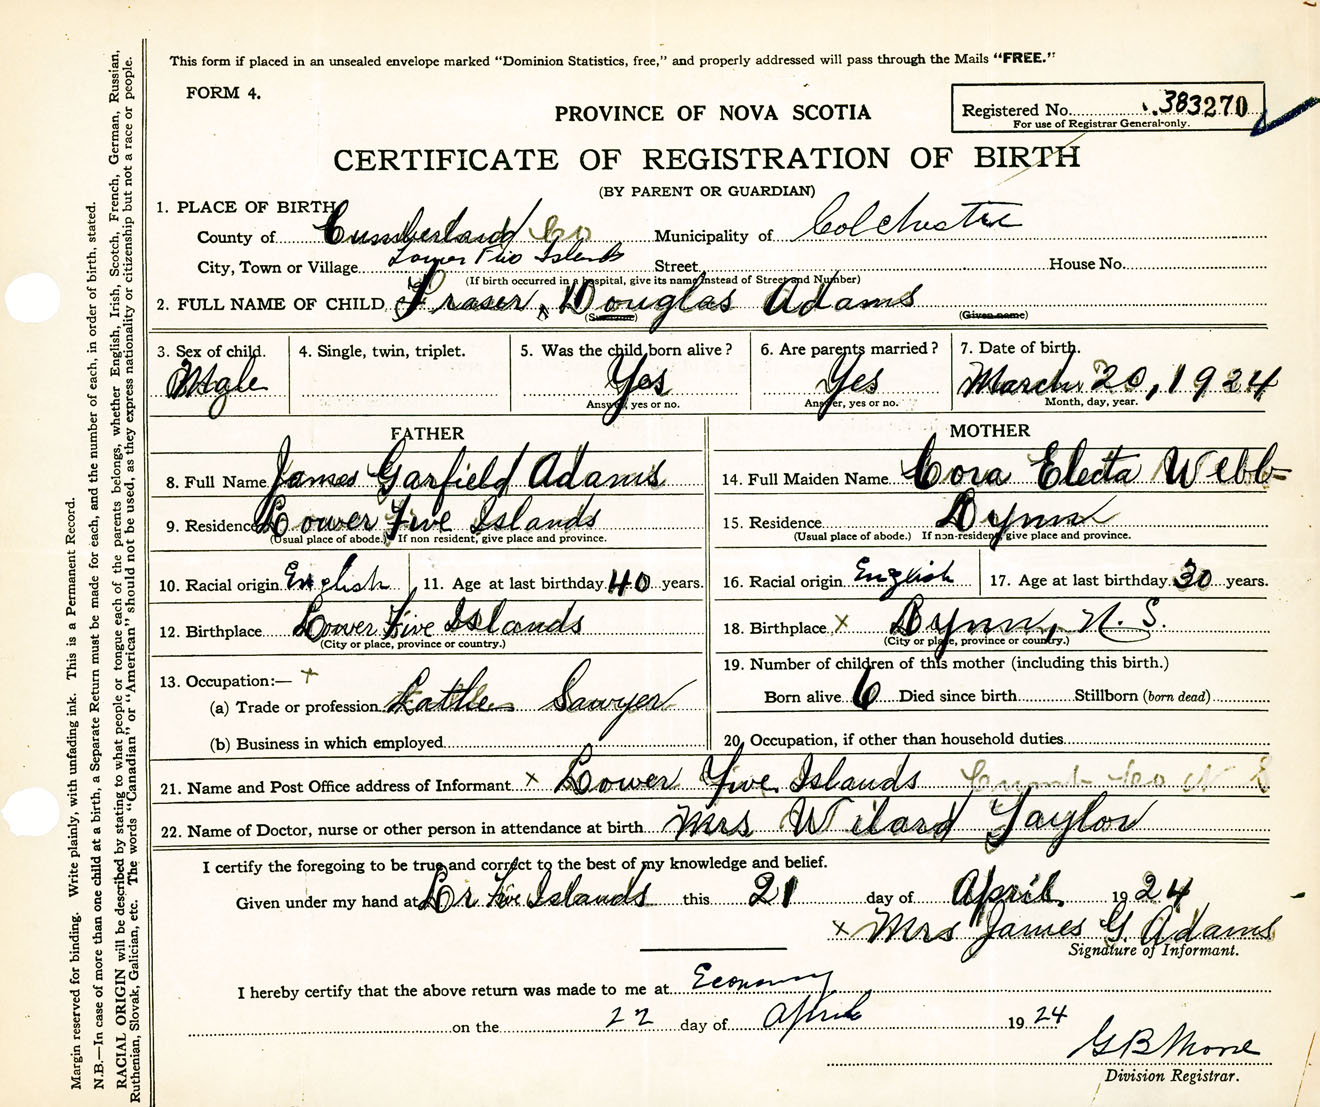 This form if placed in an unsealed envelope marked "Dominion Statistics, free," and properly addressed will pass through the Mails "FREE."
FORM 4.
PROVINCE OF NOVA SCOTIA
Registered No. 383270
For use of Registrar General only.
CERTIFICATE OF REGISTRATION OF BIRTH
(BY PARENT OR GUARDIAN)
1. PLACE OF BIRTH
County of Cumberland Co Municipality of Colchester
City, Town or Village Lower Five Islands Street House No.
(If birth occurred in a hospital, give its name instead of Street and Number)
2. FULL NAME OF CHILD Fraser Douglas Adams
(Surname) (Given name)
3. Sex of child. 4. Single, twin, triplet. 5. Was the child born alive? 6. Are parents married? 7. Date of birth.
Male Yes Yes March 20, 1924
Answer, yes or no. Answer, yes or no. Month, day, year.
FATHER MOTHER
8. Full Name James Garfield Adams 14. Full Maiden Name Cora Electa Webb
9. Residence Lower Five Islands 15. Residence Lynn
(Usual place of abode.) If non resident, give place and province. (Usual place of abode.) If non-resident, give place and province.
10. Racial origin English 11. Age at last birthday 40 years. 16. Racial origin English 17. Age at last birthday 30 years.
12. Birthplace Lower Five Islands 18. Birthplace x Lynn, N. S.
(City or place, province or country.) (City or place, province or country.)
13. Occupation:— + 19. Number of children of this mother (including this birth.)
(a) Trade or profession Sawyer Born alive 6 Died since birth Stillborn (born dead)
(b) Business in which employed 20. Occupation, if other than household duties
21. Name and Post Office address of Informant x Lower Five Islands Cumb Co N S
22. Name of Doctor, nurse or other person in attendance at birth Mrs Wilard Taylor
I certify the foregoing to be true and correct to the best of my knowledge and belief.
Given under my hand at Lr Five Islands this 21 day of April 1924
x Mrs James G. Adams
Signature of Informant.
I hereby certify that the above return was made to me at Economy
on the 22 day of April 1924
G B Morse
Division Registrar.
Margin reserved for binding. Write plainly, with unfading ink. This is a Permanent Record.
N.B.—In case of more than one child at a birth, a Separate Return must be made for each, and the number of each, in order of birth, stated.
RACIAL ORIGIN will be described by stating to what people or tongue each of the parents belongs, whether English, Irish, Scotch, French, German, Russian,
Ruthenian, Slovak, Galician, etc. The words "Canadian" or "American" should not be used, as they express nationality or citizenship but not a race or people.